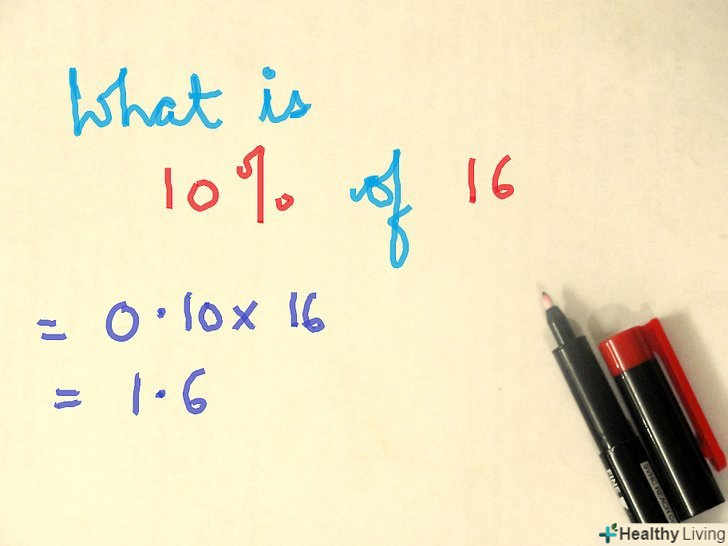 What is
10% of 16
= 0·10 x 16
= 1·6
FINE
Healthy Living